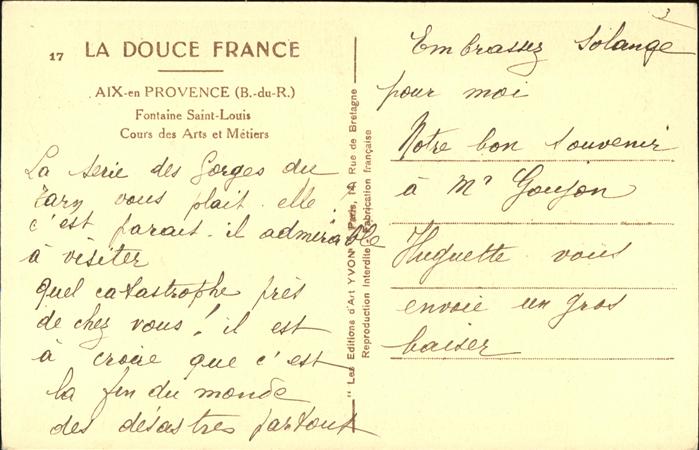 17 LA DOUCE FRANCE
AIX-en PROVENCE (B.-du-R.)
Fontaine Saint-Louis
Cours des Arts et Métiers
La serie des Gorges du
Tarn vous plait. elle ?
c'est parait-il admirable
à visiter
quel catastrophe près
de chez vous ! il est
à croire que c'est
la fin du monde
des désastres partout
" Les Editions d'Art YVON " Paris, 12, Rue de Bretagne
Reproduction Interdite. Fabrication française
3
Embrassez Solange
pour moi
Notre bon souvenir
à Mr Goujon
Huguette vous
envoie un gros
baiser